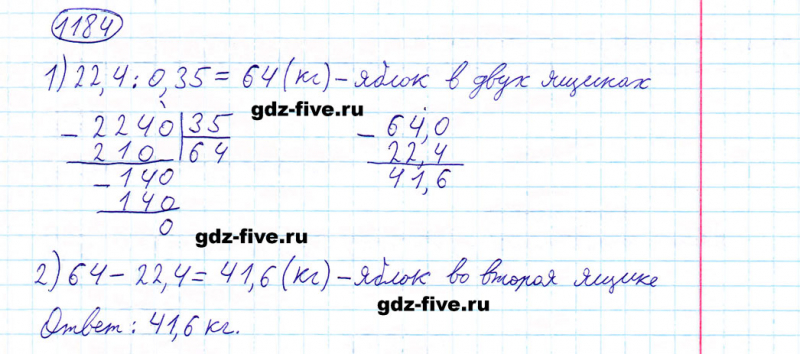 1184
1) 22,4 : 0,35 = 64 (кг) – яблок в двух ящиках
gdz-five.ru
– 2240 | 35
210 | 64
– 140
140
0
– 64,0
22,4
41,6
gdz-five.ru
2) 64 – 22,4 = 41,6 (кг) – яблок во втором ящике
gdz-five.ru
Ответ: 41,6 кг.